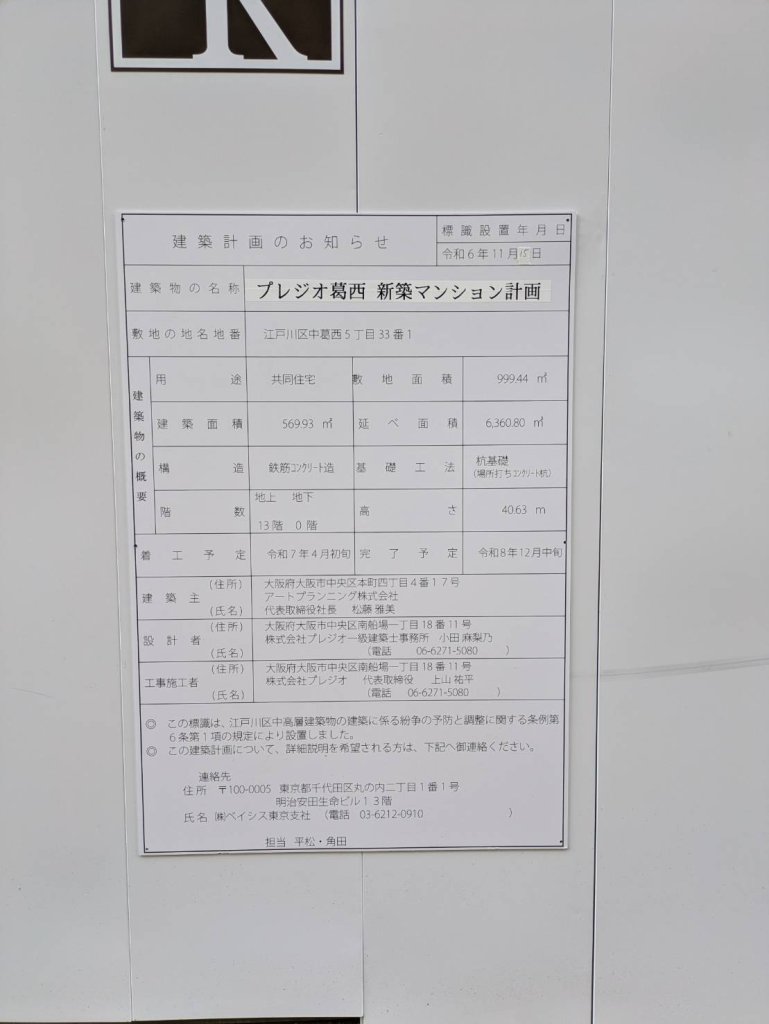 K
建築計画のお知らせ
標識設置年月日
令和6年11月15日
建築物の名称 プレジオ葛西 新築マンション計画
敷地の地名地番 江戸川区中葛西5丁目33番1
建築物の概要
用途 共同住宅 敷地面積 999.44 ㎡
建築面積 569.93 ㎡ 延べ面積 6,360.80 ㎡
構造 鉄筋コンクリート造 基礎工法 杭基礎
(場所打ちコンクリート杭)
階数 地上 地下
13階 0階
高さ 40.63 m
着工予定 令和7年4月初旬 完了予定 令和8年12月中旬
建築主 (住所) 大阪府大阪市中央区本町四丁目4番17号
アートプランニング株式会社
(氏名) 代表取締役社長 松藤 雅美
設計者 (住所) 大阪府大阪市中央区南船場一丁目18番11号
株式会社プレジオ一級建築士事務所 小田 麻梨乃
(氏名) (電話 06-6271-5080 )
工事施工者 (住所) 大阪府大阪市中央区南船場一丁目18番11号
株式会社プレジオ 代表取締役 上山 祐平
(氏名) (電話 06-6271-5080 )
◎ この標識は、江戸川区中高層建築物の建築に係る紛争の予防と調整に関する条例第
6条第1項の規定により設置しました。
◎ この建築計画について、詳細説明を希望される方は、下記へ御連絡ください。
連絡先
住所 〒100-0005 東京都千代田区丸の内二丁目1番1号
明治安田生命ビル13階
氏名 ㈱ベイシス東京支社 (電話 03-6212-0910 )
担当 平松・角田